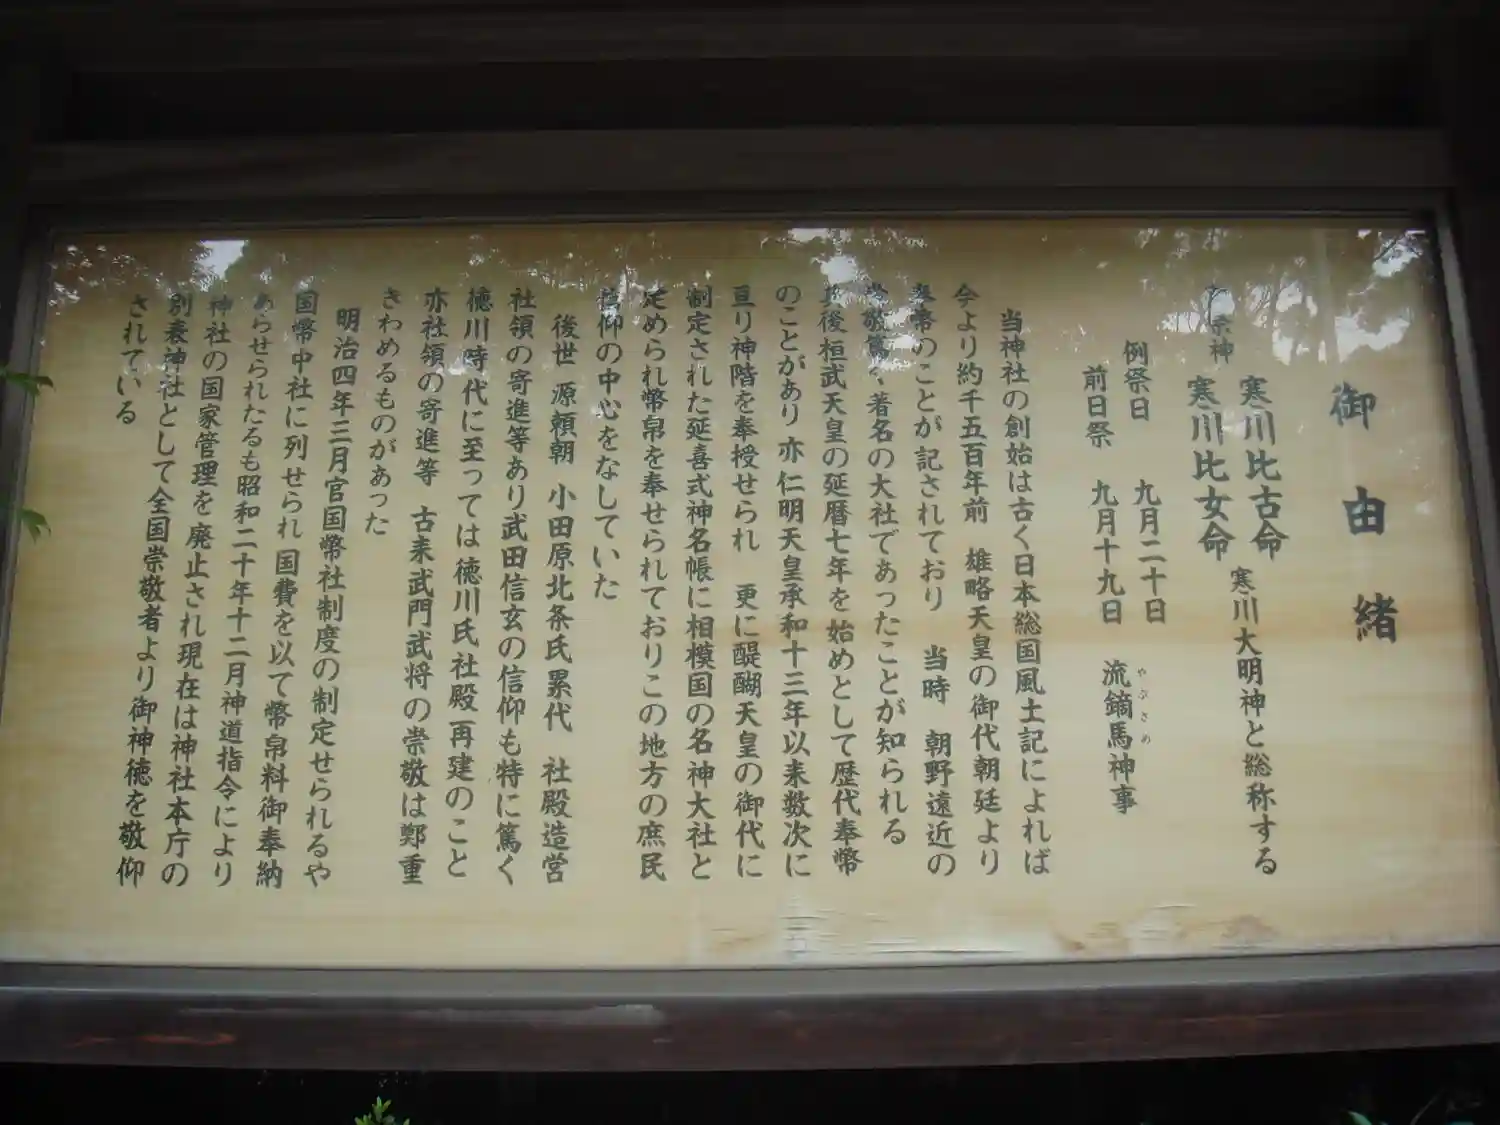 御由緒
祭神
寒川比古命
寒川比女命
寒川大明神と総称する
例祭日 九月二十日
前日祭 九月十九日 流鏑馬神事
やぶさめ
当神社の創始は古く日本総国風土記によれば
今より約千五百年前 雄略天皇の御代朝廷より
幣のことが記されており 当時 朝野遠近の
敬篤く著名の大社であったことが知られる
後桓武天皇の延暦七年を始めとして歴代奉幣
のことがあり 亦仁明天皇承和十三年以来数次に
亘り神階を奉授せられ 更に醍醐天皇の御代に
制定された延喜式神名帳に相模国の名神大社と
定められ幣帛を奉せられておりこの地方の庶民
信仰の中心をなしていた
後世 源頼朝 小田原北条氏累代 社殿造営
社領の寄進等あり武田信玄の信仰も特に篤く
徳川時代に至っては徳川氏社殿再建のこと
亦社領の寄進等 古来武門武将の崇敬は鄭重
きわめるものがあった
明治四年三月官国幣社制度の制定せられるや
国幣中社に列せられ国費を以て幣帛料御奉納
あらせられたるも昭和二十年十二月神道指令により
神社の国家管理を廃止され現在は神社本庁の
別表神社として全国崇敬者より御神徳を敬仰
されている